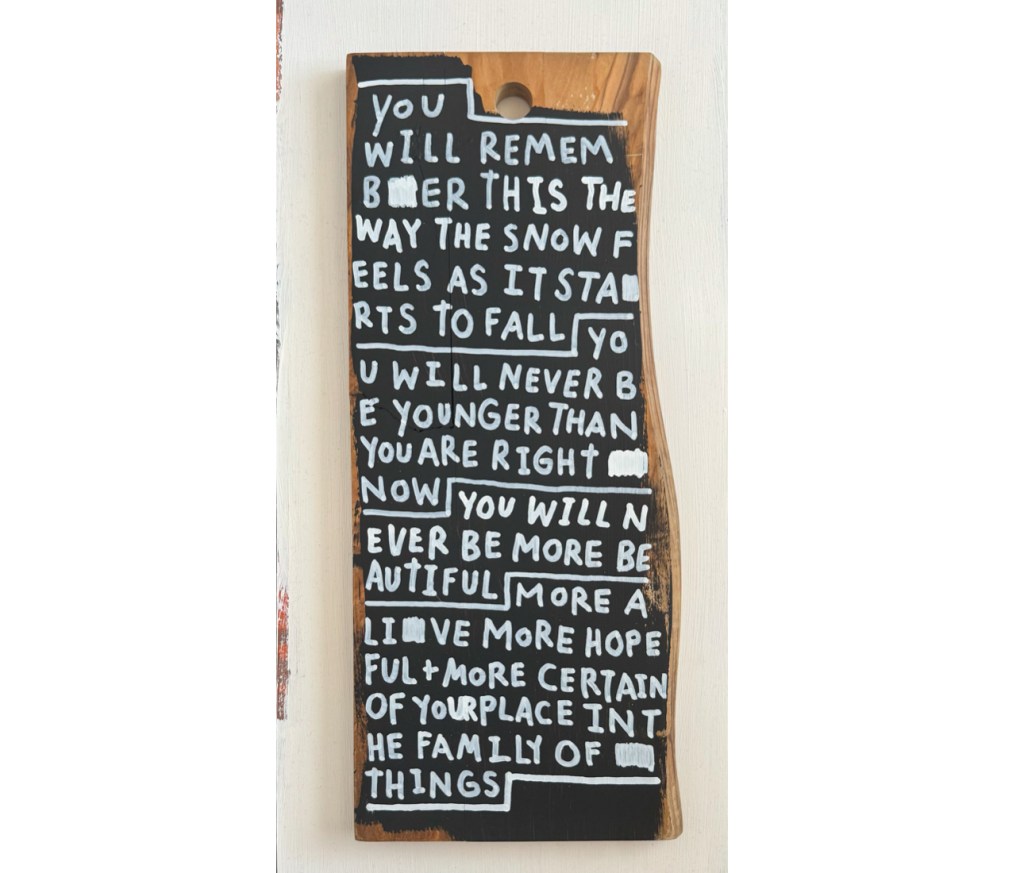 YOU
WILL REMEM
BER THIS THE
WAY THE SNOW F
EELS AS IT STA
RTS TO FALL YO
U WILL NEVER B
E YOUNGER THAN
YOU ARE RIGHT
NOW YOU WILL N
EVER BE MORE BE
AUTIFUL MORE A
LIVE MORE HOPE
FUL + MORE CERTAIN
OF YOUR PLACE IN T
HE FAMILY OF
THINGS